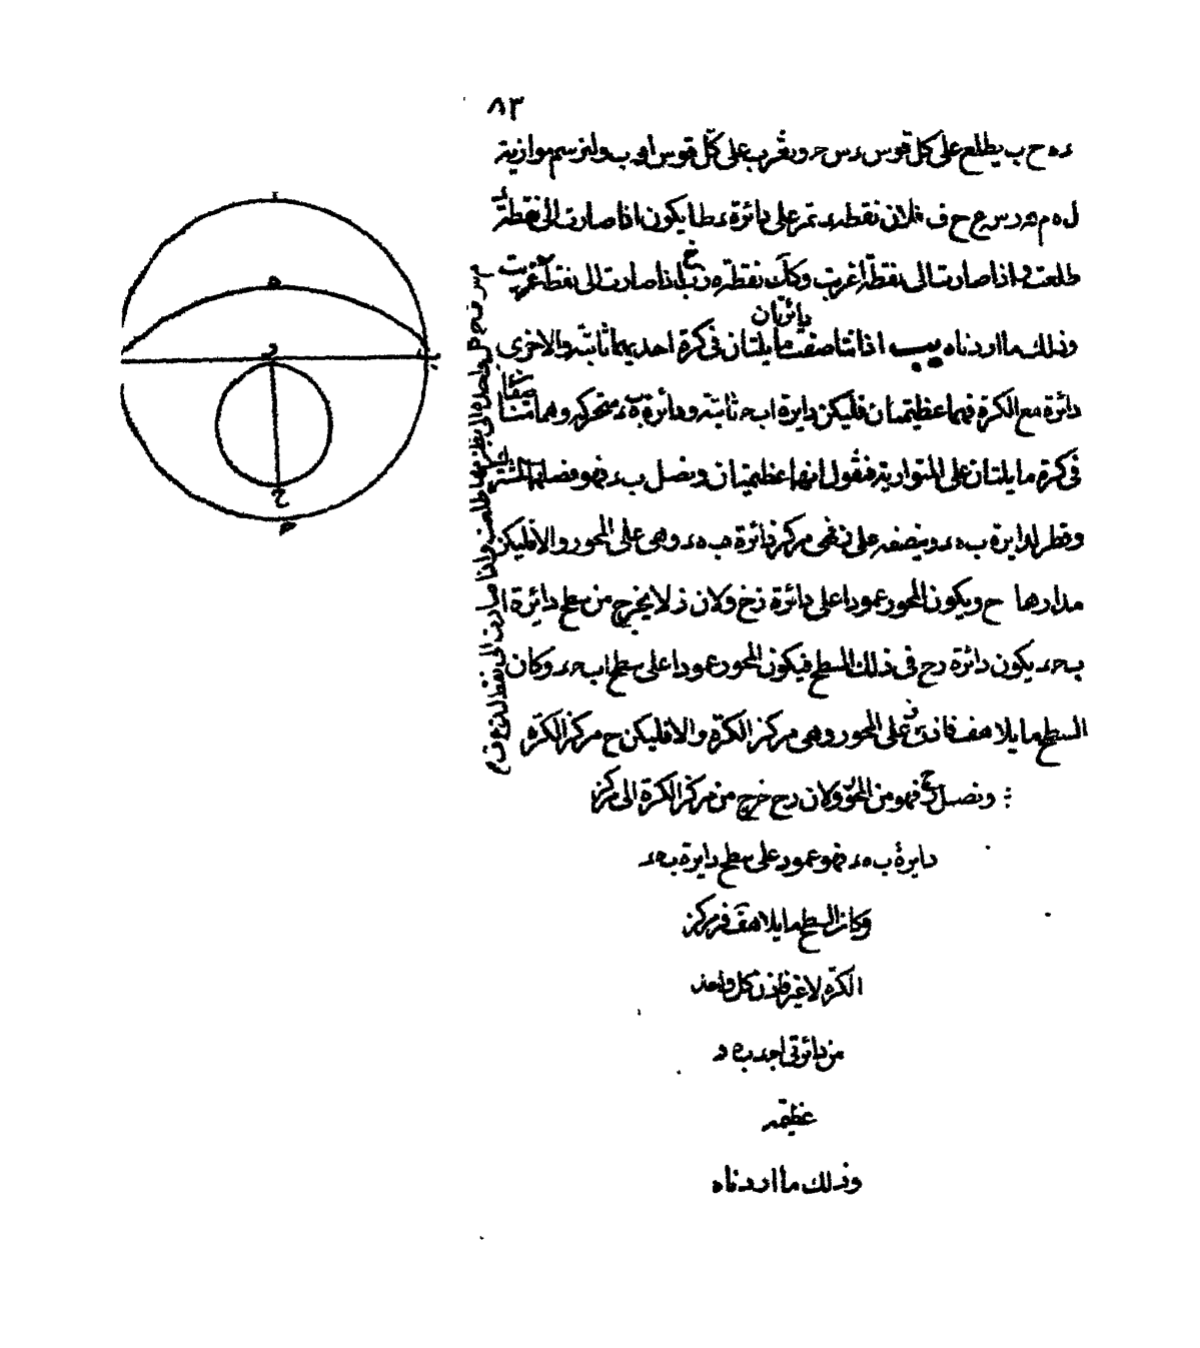 ٨٣
ء ه ح ب يطلع على كل قوس ء س ح ويغرب على كل قوس اوب ولنرسم موازية
ل ه م
ع ح ف فلان نقطة ء تمر على دائرة ء طا يكون اذا صارت الى نقطة
طلعت واذا صارت الى نقطة ا غربت وكل نقطة اذا صارت الى نقطة غربت
وذلك ما اردناه يب اذا تناصفت دائرتان مايلتان فى كرة احديهما ثابتة والاخرى
دائرة مع الكرة فهما عظيمتان فليكن دايرة اب ح ثابتة ودائرة ب ه ء متحركة وهما متناصفتا
فى كرة مايلتان على المتوازية فنقول انهما عظيمتان ونصل ب ء فهو فصلهما المشترك
وقطر لدايرة ب ه ء وينصفه على ز فهى مركز دائرة ب ه ء وهى على المحور والا فليكن
مدارها ح ويكون المحور عمودا على دائرة زح ولان ز لا يخرج من سطح دائرة ا
ب ح ء يكون دائرة زح فى ذلك السطح فيكون المحور عمودا على سطح اب ح ء وكان
السطح مايلا هف فاذن ز على المحور وهى مركز الكرة والا فليكن ح مركز الكرة
ونصل زح فهو من المحور ولان زح خرج من مركز الكرة الى مركز
دايرة ب ه ء فهو عمود على سطح دايرة ب ه ء
وكان السطح مايلا هف فز مركز
الكرة لا غير فاذن كل واحد
من دائرتى اجد ب ه د
عظيمة
وذلك ما اردناه
طلعت واذا صارت الى نقطة
ا
ه
ء
ز
ب
ح
ح